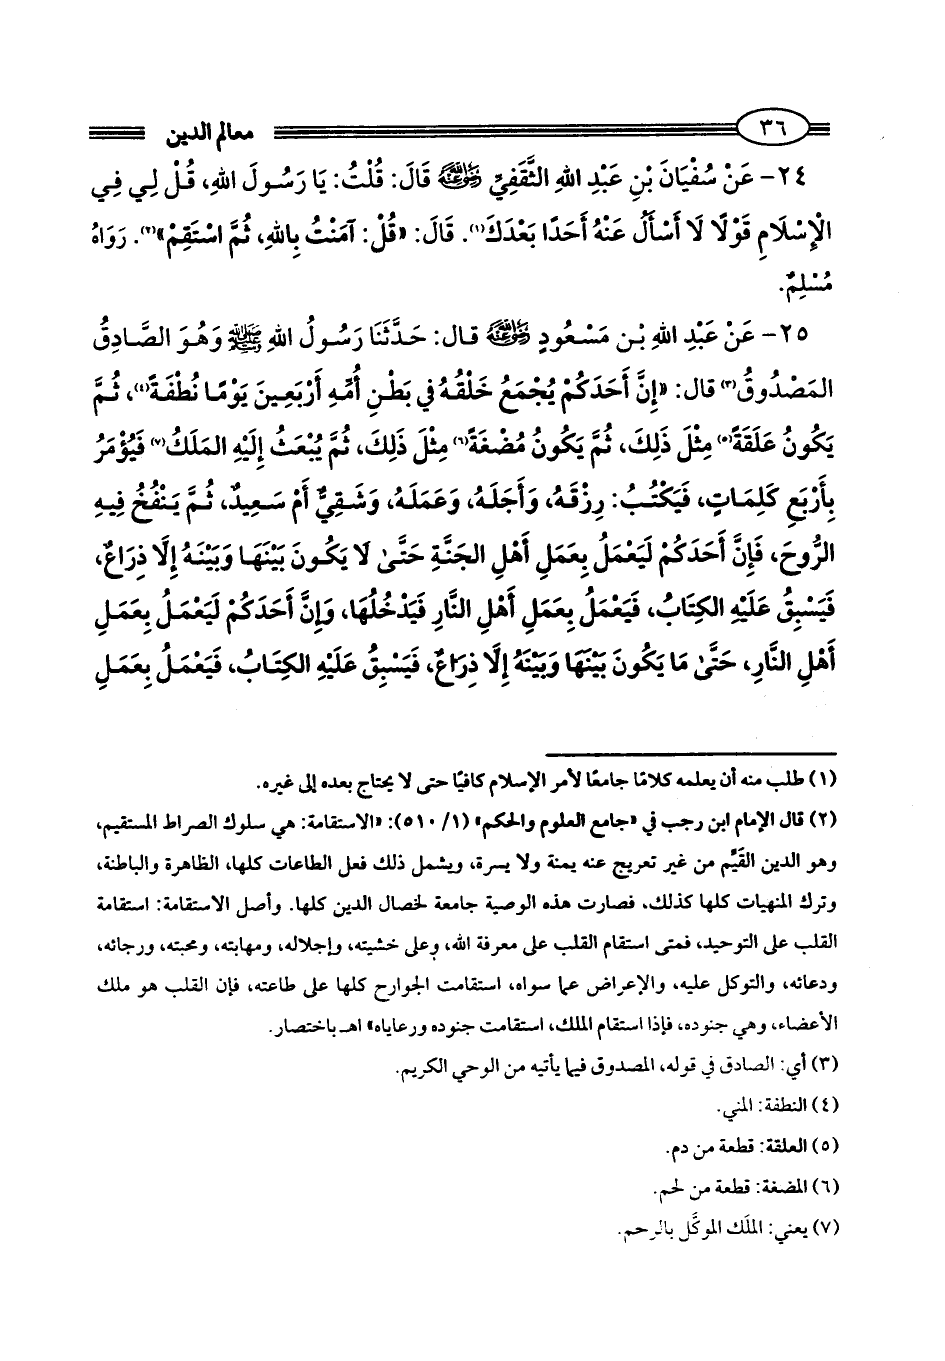 ٣٦ معالم الدين
٢٤- عَنْ سُفْيَانَ بْنِ عَبْدِ اللهِ الثَّقَفِيِّ رضي الله عنه قَالَ: قُلْتُ: يَا رَسُولَ اللهِ، قُلْ لِي فِي
الْإِسْلَامِ قَوْلًا لَا أَسْأَلُ عَنْهُ أَحَدًا بَعْدَكَ(١). قَالَ: «قُلْ: آمَنْتُ بِاللهِ، ثُمَّ اسْتَقِمْ»(٢). رَوَاهُ
مُسْلِمٌ.
٢٥- عَنْ عَبْدِ اللهِ بْنِ مَسْعُودٍ رضي الله عنه قال: حَدَّثَنَا رَسُولُ اللهِ ﷺ وَهُوَ الصَّادِقُ
المَصْدُوقُ(٣) قال: «إِنَّ أَحَدَكُمْ يُجْمَعُ خَلْقُهُ فِي بَطْنِ أُمِّهِ أَرْبَعِينَ يَوْمًا نُطْفَةً(٤)، ثُمَّ
يَكُونُ عَلَقَةً(٥) مِثْلَ ذَلِكَ، ثُمَّ يَكُونُ مُضْغَةً(٦) مِثْلَ ذَلِكَ، ثُمَّ يُبْعَثُ إِلَيْهِ المَلَكُ(٧) فَيُؤْمَرُ
بِأَرْبَعِ كَلِمَاتٍ، فَيَكْتُبُ: رِزْقَهُ، وَأَجَلَهُ، وَعَمَلَهُ، وَشَقِيٌّ أَمْ سَعِيدٌ، ثُمَّ يَنْفُخُ فِيهِ
الرُّوحَ، فَإِنَّ أَحَدَكُمْ لَيَعْمَلُ بِعَمَلِ أَهْلِ الجَنَّةِ حَتَّىٰ لَا يَكُونَ بَيْنَهَا وَبَيْنَهُ إِلَّا ذِرَاعٌ،
فَيَسْبِقُ عَلَيْهِ الكِتَابُ، فَيَعْمَلُ بِعَمَلِ أَهْلِ النَّارِ فَيَدْخُلُهَا، وَإِنَّ أَحَدَكُمْ لَيَعْمَلُ بِعَمَلِ
أَهْلِ النَّارِ، حَتَّىٰ مَا يَكُونَ بَيْنَهَا وَبَيْنَهُ إِلَّا ذِرَاعٌ، فَيَسْبِقُ عَلَيْهِ الكِتَابُ، فَيَعْمَلُ بِعَمَلِ
(١) طلب منه أن يعلمه كلامًا جامعًا لأمر الإسلام كافيًا حتى لا يحتاج بعده إلى غيره.
(٢) قال الإمام ابن رجب في «جامع العلوم والحكم» (١/ ٥١٠): «الاستقامة: هي سلوك الصراط المستقيم،
وهو الدين القَيِّم من غير تعريج عنه يمنة ولا يسرة، ويشمل ذلك فعل الطاعات كلها، الظاهرة والباطنة،
وترك المنهيات كلها كذلك، فصارت هذه الوصية جامعة لخصال الدين كلها. وأصل الاستقامة: استقامة
القلب على التوحيد، فمتى استقام القلب على معرفة الله، وعلى خشيته، وإجلاله، ومهابته، ومحبته، ورجائه،
ودعائه، والتوكل عليه، والإعراض عما سواه، استقامت الجوارح كلها على طاعته، فإن القلب هو ملك
الأعضاء، وهي جنوده، فإذا استقام الملك، استقامت جنوده ورعاياه» اهـ باختصار.
(٣) أي: الصادق في قوله، المصدوق فيما يأتيه من الوحي الكريم.
(٤) النطفة: المني.
(٥) العلقة: قطعة من دم.
(٦) المضغة: قطعة من لحم.
(٧) يعني: الملَك الموكَّل بالرحم.